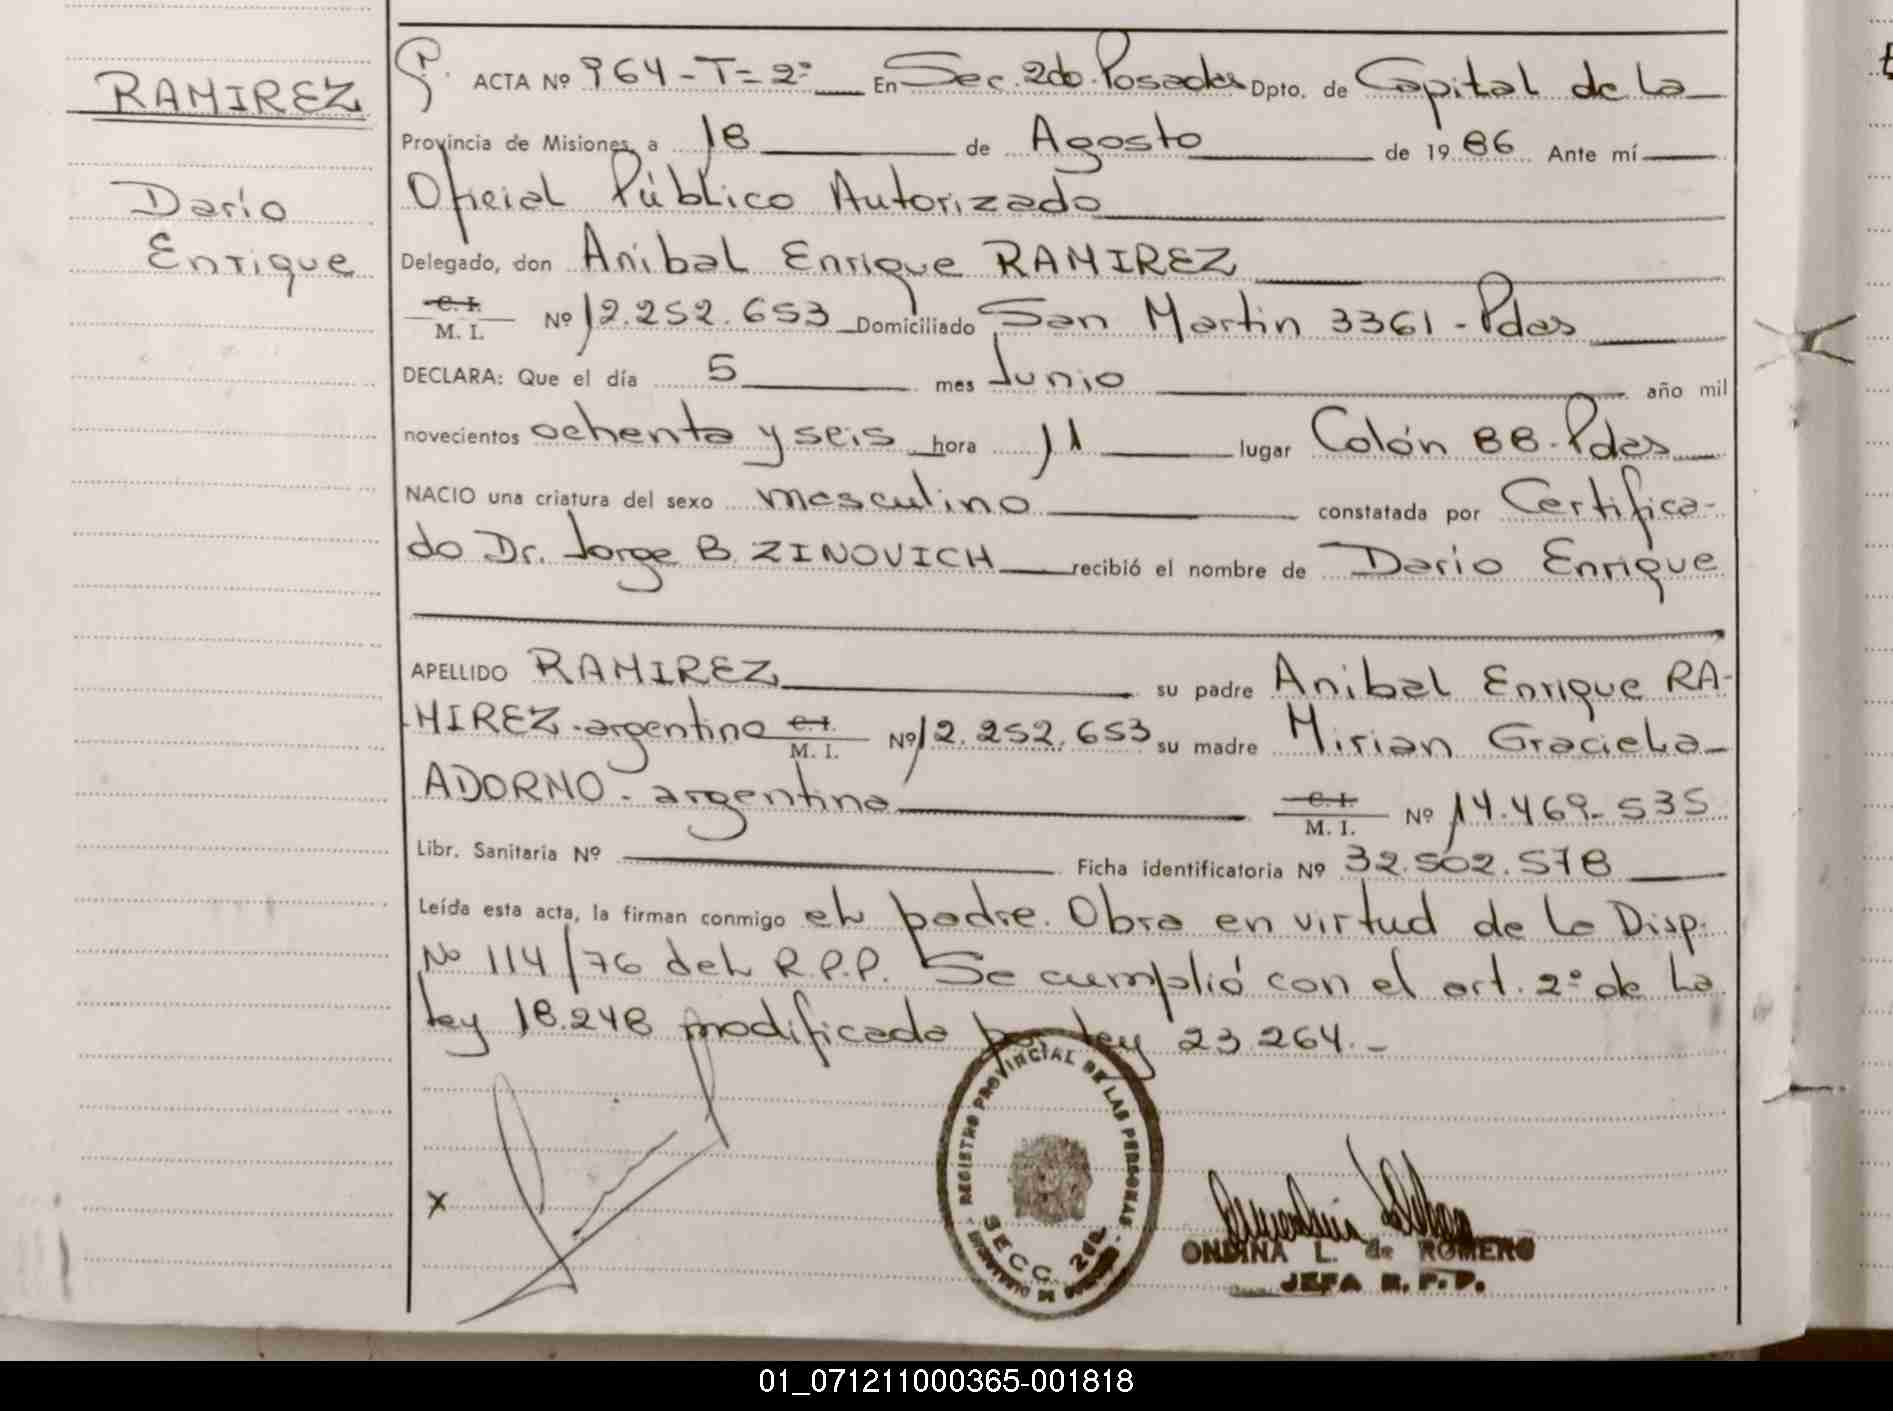 RAMIREZ
Darío
Enrique
ACTA Nº 964-T=2º En Sec. 2do. Posadas Dpto. de Capital de la
Provincia de Misiones, a 18 de Agosto de 1986 Ante mí
Oficial Público Autorizado
Delegado, don Aníbal Enrique RAMIREZ
C. I.
M. I. Nº 12.252.653 Domiciliado San Martin 3361-Pdas
DECLARA: Que el día 5 mes Junio año mil
novecientos ochenta y seis hora 11 lugar Colón 88-Pdas
NACIO una criatura del sexo masculino constatada por Certifica-
do Dr. Jorge B. ZINOVICH recibió el nombre de Darío Enrique
APELLIDO RAMIREZ su padre Anibal Enrique RA-
MIREZ-argentino C.I. M. I. Nº 12.252.653 su madre Mirian Graciela
ADORNO-argentina C. I. M. I. Nº 14.469.535
Libr. Sanitaria Nº Ficha identificatoria Nº 32.502.578
Leída esta acta, la firman conmigo el padre. Obra en virtud de la Disp.
Nº 114/76 del R.P.P. Se cumplió con el art. 2º de la
ley 18.248 modificada por ley 23.264.-
REGISTRO PROVINCIAL DE LAS PERSONAS
SECC. 2da
x
ONDINA L. de ROMERO
JEFA R. P. P.
01_071211000365-001818